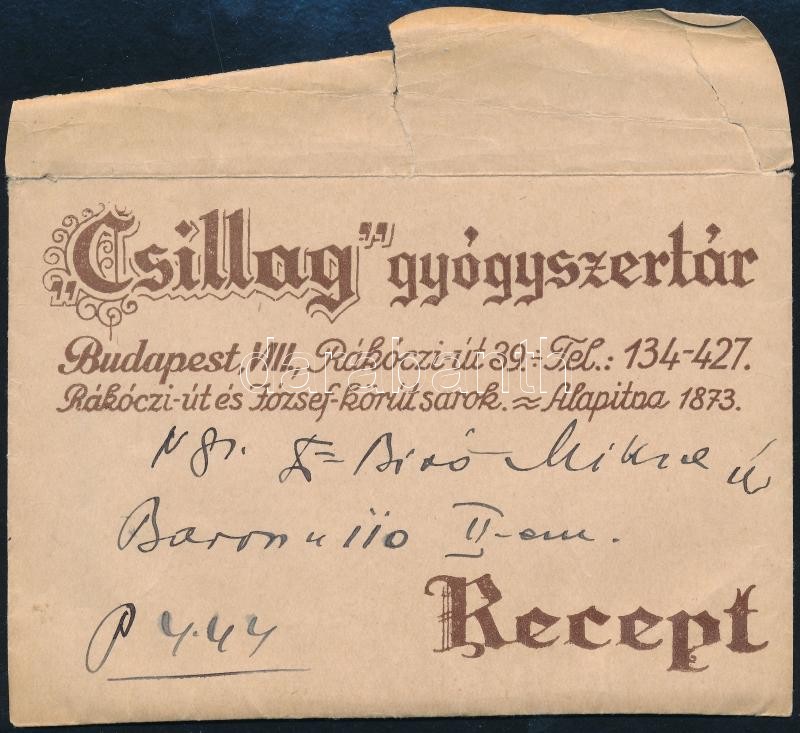 „Csillag" gyógyszertár
Budapest, VIII., Rákóczi-út 39.÷Tel.: 134-427.
Rákóczi-út és József-körút sarok. ≈ Alapitva 1873.
Ngs. Biró Miksa úr
Baross u 110 II-em.
P 4.44
Recept
darabanth